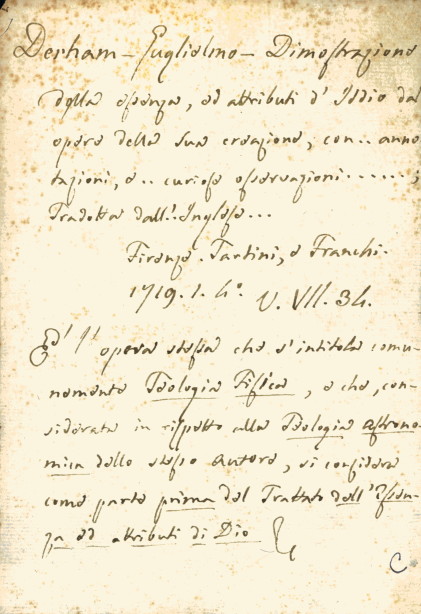 Derham - Guglielmo - Dimostrazione
della essenza, ed attributi d' Iddio dal
opere della sua creazione, con .. anno
tazioni, e .. curiose osservazioni ......;
Tradotta dall'. Inglese ...
Firenze. Tartini, e Franchi.
1719. 1. 4º. V. VII. 34.
E' l' opera stessa che s' intitola comu-
nemente Teologia Fisica, e che, con-
siderata in rispetto alla Teologia astrono-
mica dello stesso autore, si considera
come parte prima del Trattato dell' Essen-
za ed attributi di Dio
C